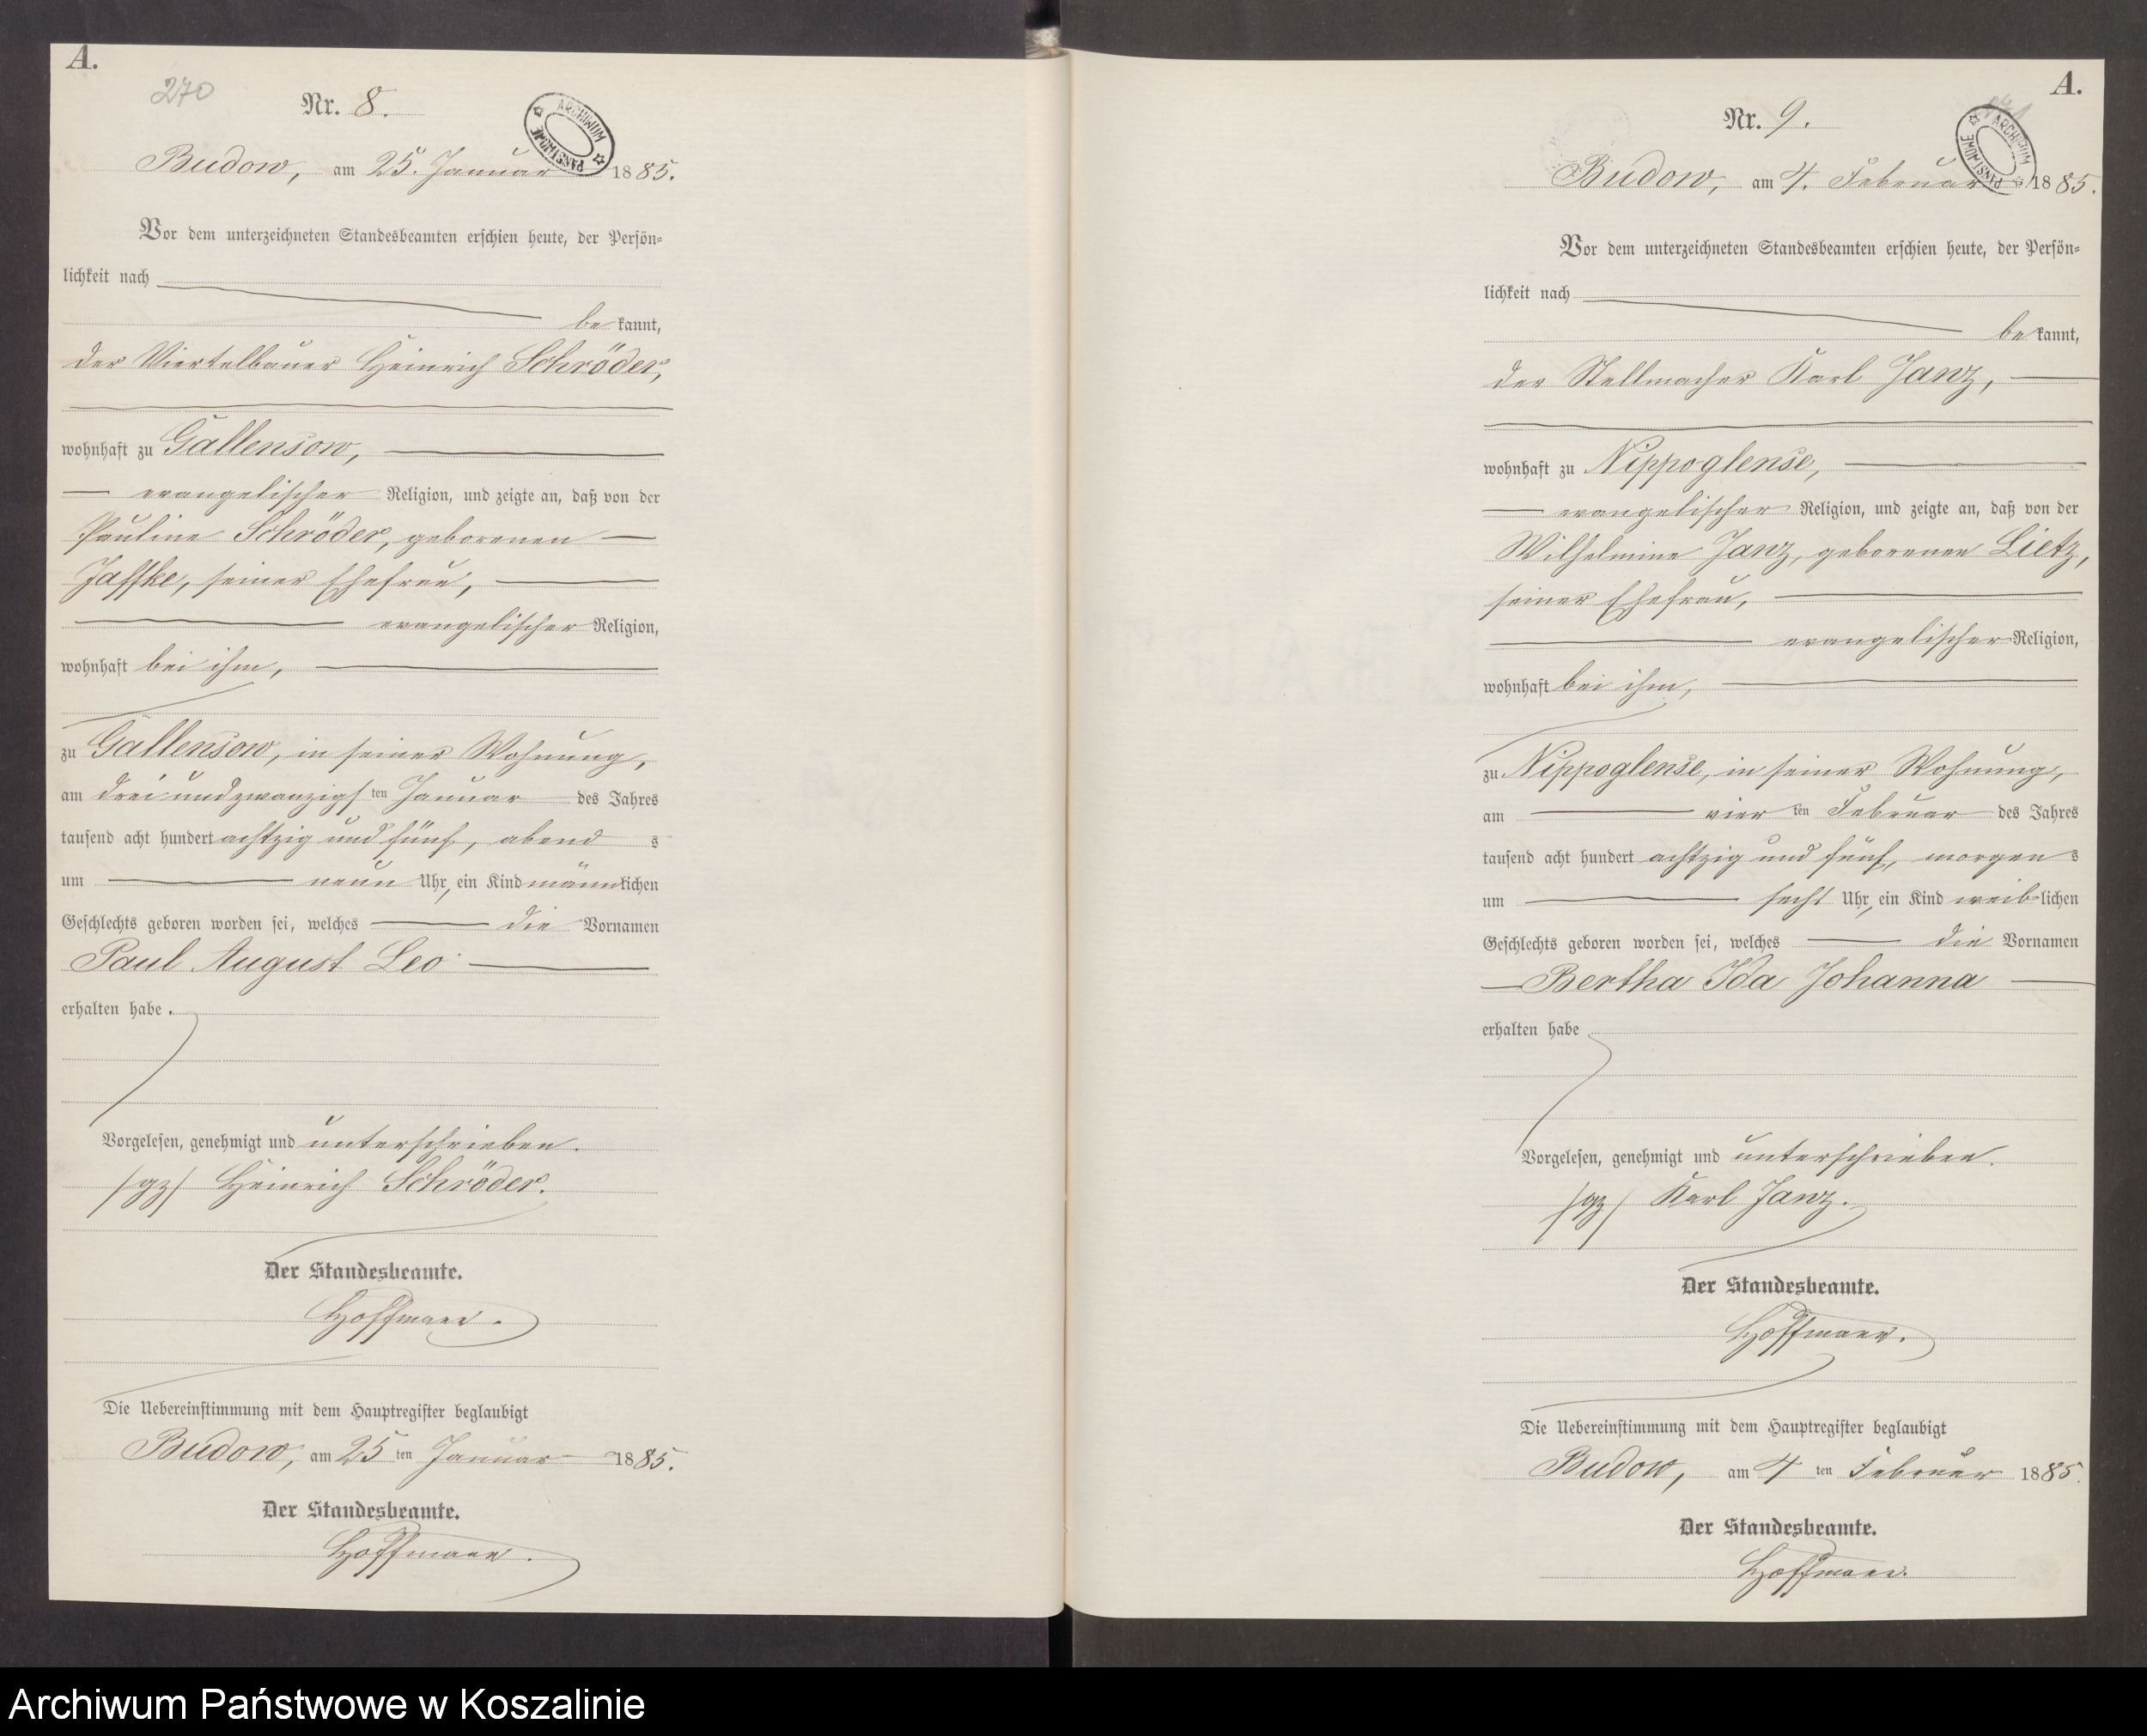 A.
270
Nr. 8.
ARCHIWUM PAŃSTWOWE
Budow, am 25. Januar 1885.
Vor dem unterzeichneten Standesbeamten erschien heute, der Persön-
lichkeit nach
be kannt,
der Viertelbauer Heinrich Schröder,
wohnhaft zu Gallensow,
evangelischer Religion, und zeigte an, daß von der
Pauline Schröder, geborenen
Jaffke, seiner Ehefrau,
evangelischer Religion,
wohnhaft bei ihm,
zu Gallensow, in seiner Wohnung,
am drei und zwanzigsten Januar des Jahres
tausend acht hundert achtzig und fünf, abend s
um neun Uhr, ein Kind männlichen
Geschlechts geboren worden sei, welches die Vornamen
Paul August Leo
erhalten habe.
Vorgelesen, genehmigt und unterschrieben.
/gz/ Heinrich Schröder.
Der Standesbeamte.
Hoffmann.
Die Uebereinstimmung mit dem Hauptregister beglaubigt
Budow, am 25 ten Januar 1885.
Der Standesbeamte.
Hoffmann.
A.
Nr. 9.
ARCHIWUM PAŃSTWOWE
Budow, am 4. Februar 1885.
Vor dem unterzeichneten Standesbeamten erschien heute, der Persön-
lichkeit nach
be kannt,
der Stellmacher Karl Janz,
wohnhaft zu Nippoglense,
evangelischer Religion, und zeigte an, daß von der
Wilhelmine Janz, geborenen Lietz,
seiner Ehefrau,
evangelischer Religion,
wohnhaft bei ihm,
zu Nippoglense, in seiner Wohnung,
am vier ten Februar des Jahres
tausend acht hundert achtzig und fünf, morgen s
um sechs Uhr, ein Kind weiblichen
Geschlechts geboren worden sei, welches die Vornamen
Bertha Ida Johanna
erhalten habe
Vorgelesen, genehmigt und unterschrieben.
/gz/ Karl Janz.
Der Standesbeamte.
Hoffmann.
Die Uebereinstimmung mit dem Hauptregister beglaubigt
Budow, am 4 ten Februar 1885.
Der Standesbeamte.
Hoffmann.
Archiwum Państwowe w Koszalinie